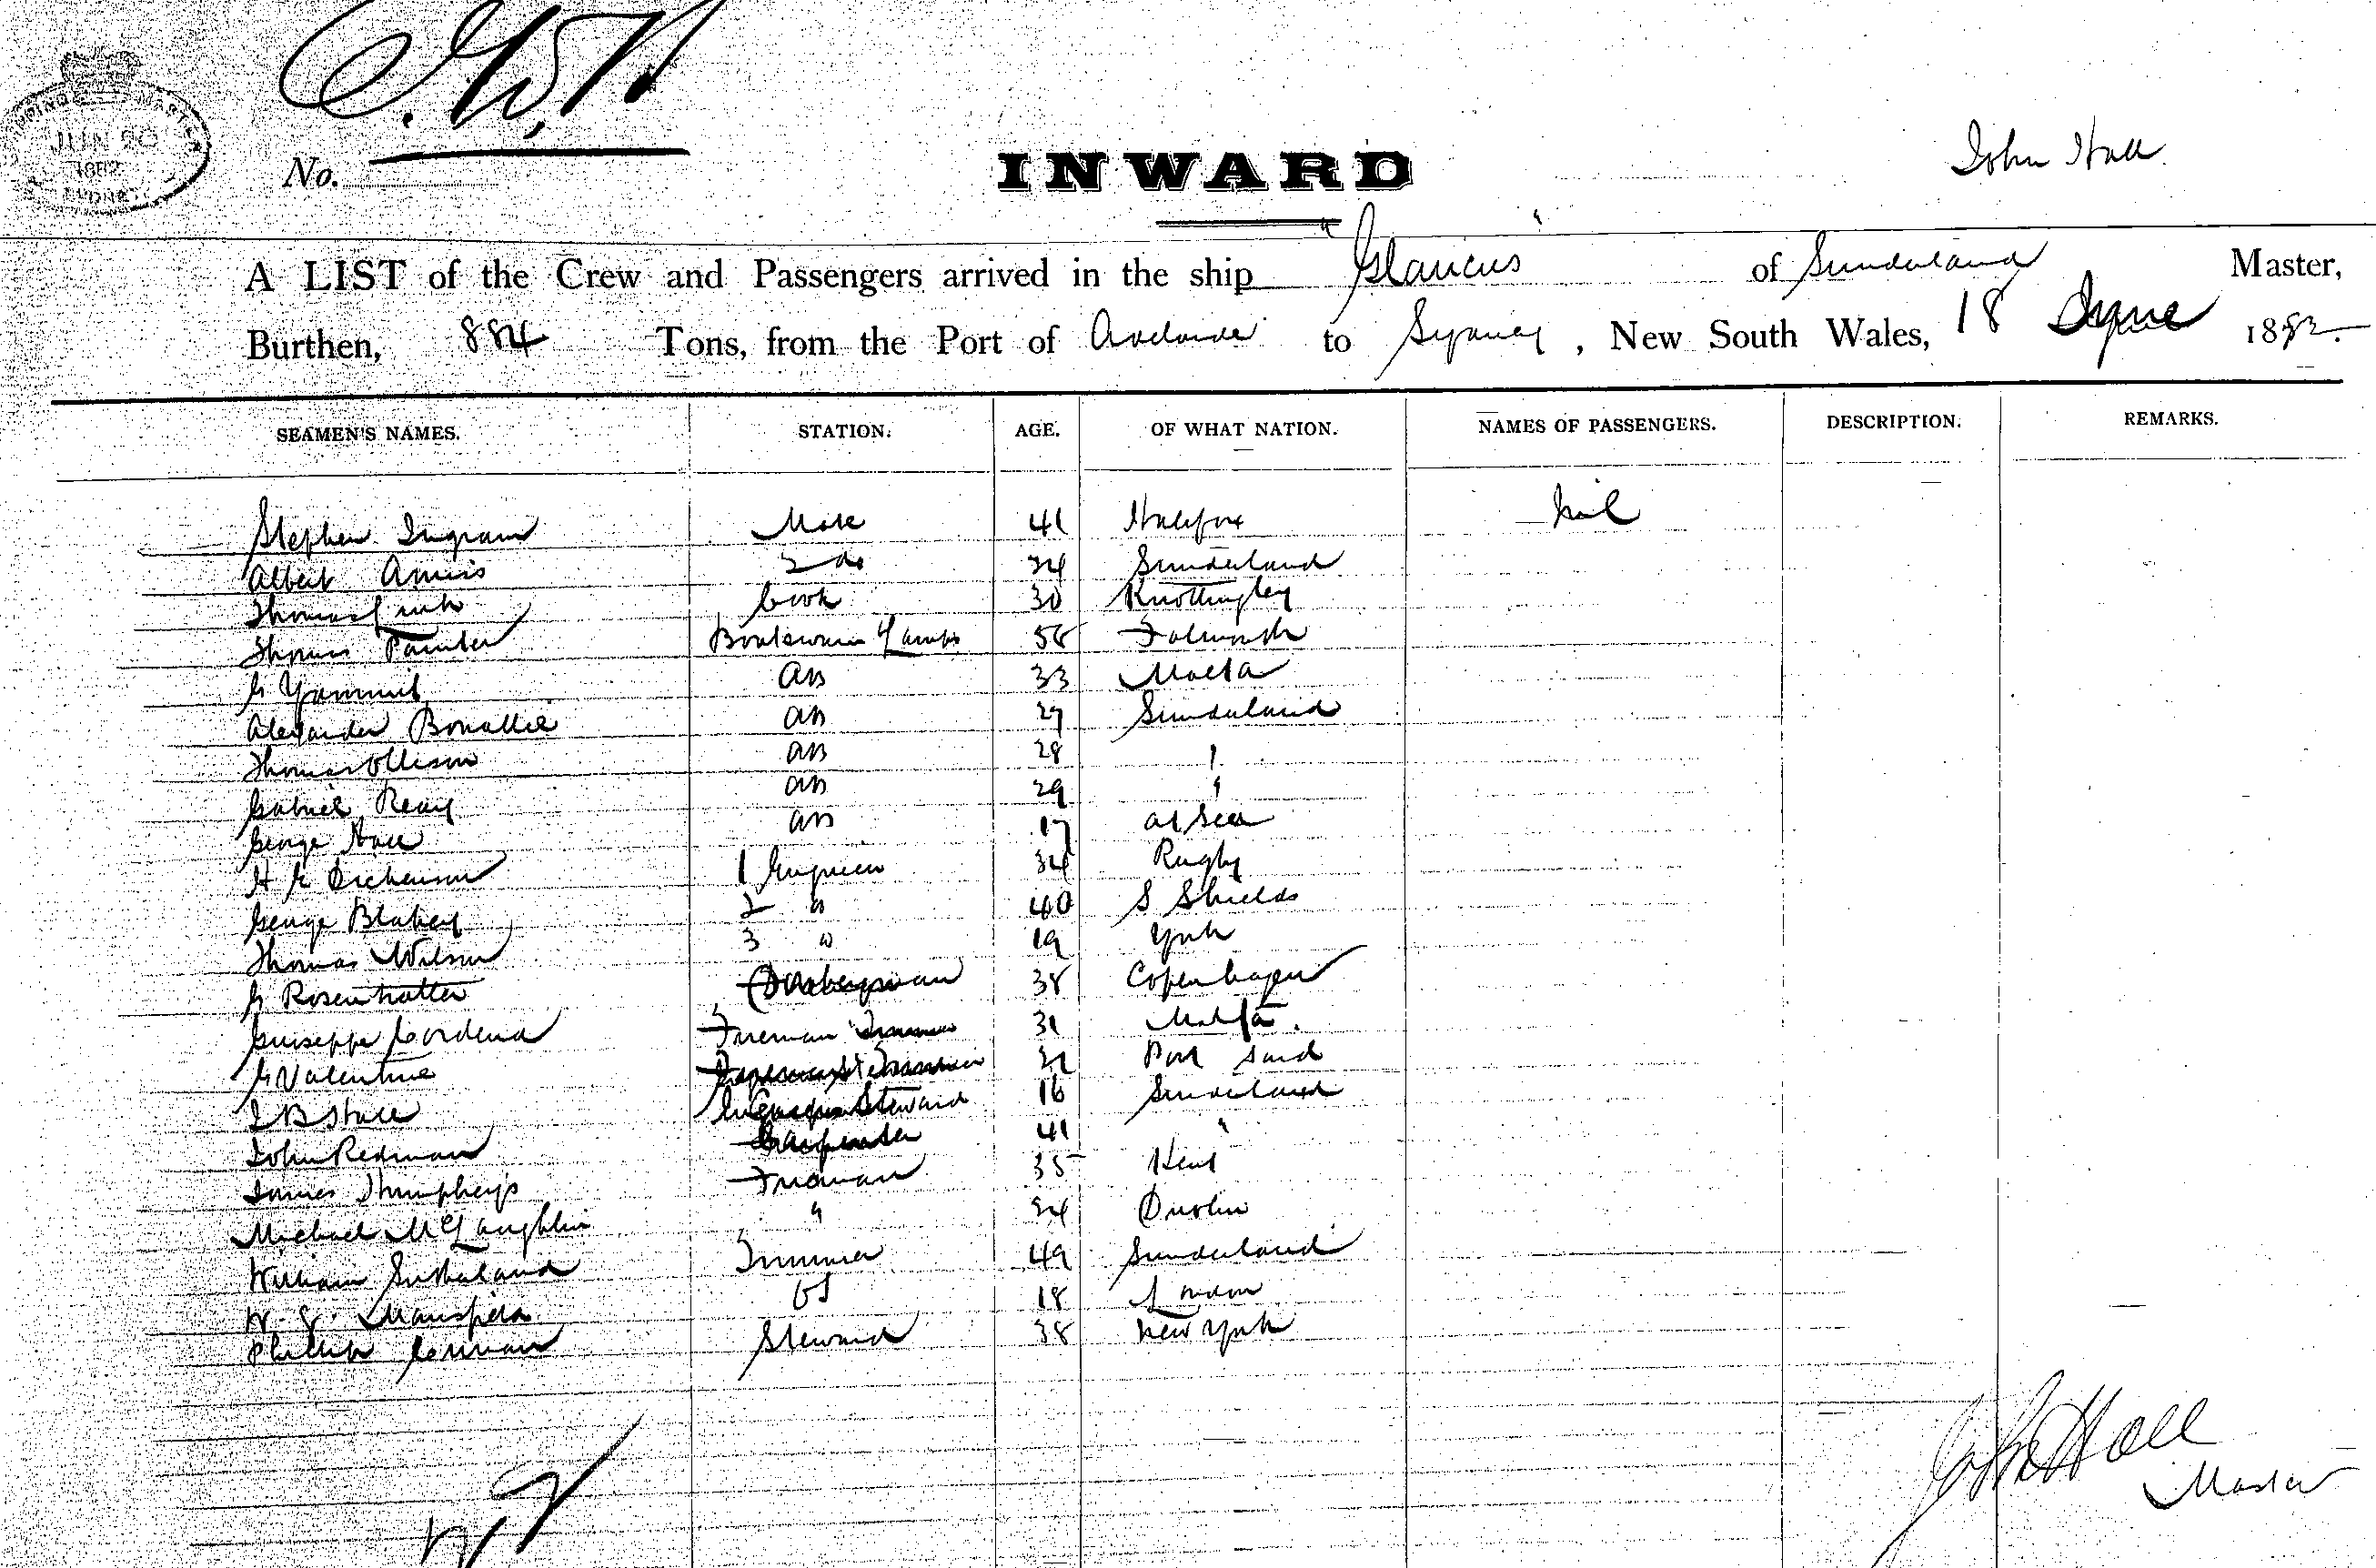 JUN 20
1882
No.
INWARD
John Hall
A LIST of the Crew and Passengers arrived in the ship "Glaucus" of Sunderland Master,
Burthen, 884 Tons, from the Port of Adelaide to Sydney, New South Wales, 18 June 1882.
SEAMEN'S NAMES. STATION. AGE. OF WHAT NATION. NAMES OF PASSENGERS. DESCRIPTION. REMARKS.
Stephen Ingram Mate 41 Halifax Nil
Albert Amiss 2 do 34 Sunderland
Thomas Cook 30 Knottingley
Thomas Painter Boatswain & Lamps 58 Falmouth
G Yammit AB 33 Malta
Alexander Bonallie AB 27 Sunderland
Thomas Ollison AB 28 "
Gabriel Reay AB 29 "
George Hall AB 17 at Sea
H G Dickenson 1 Engineer 34 Rugby
George Blakey 2 " 40 S Shields
Thomas Wilson 3 " 19 York
G 38 Copenhagen
Guiseppe Cordena Fireman Trimmer 31 Malta.
G Valentine Port Said
J B Hall Steward 16 Sunderland
John Redman Carpenter 41 "
James Humpheys Fireman 35 Kent
Michael McLaughlin " 34 Dublin
William Sutherland Trimmer 49 Sunderland
W. G. Mansfield OS 18 London
Phillip Steward 38 New York
John Hall
Master